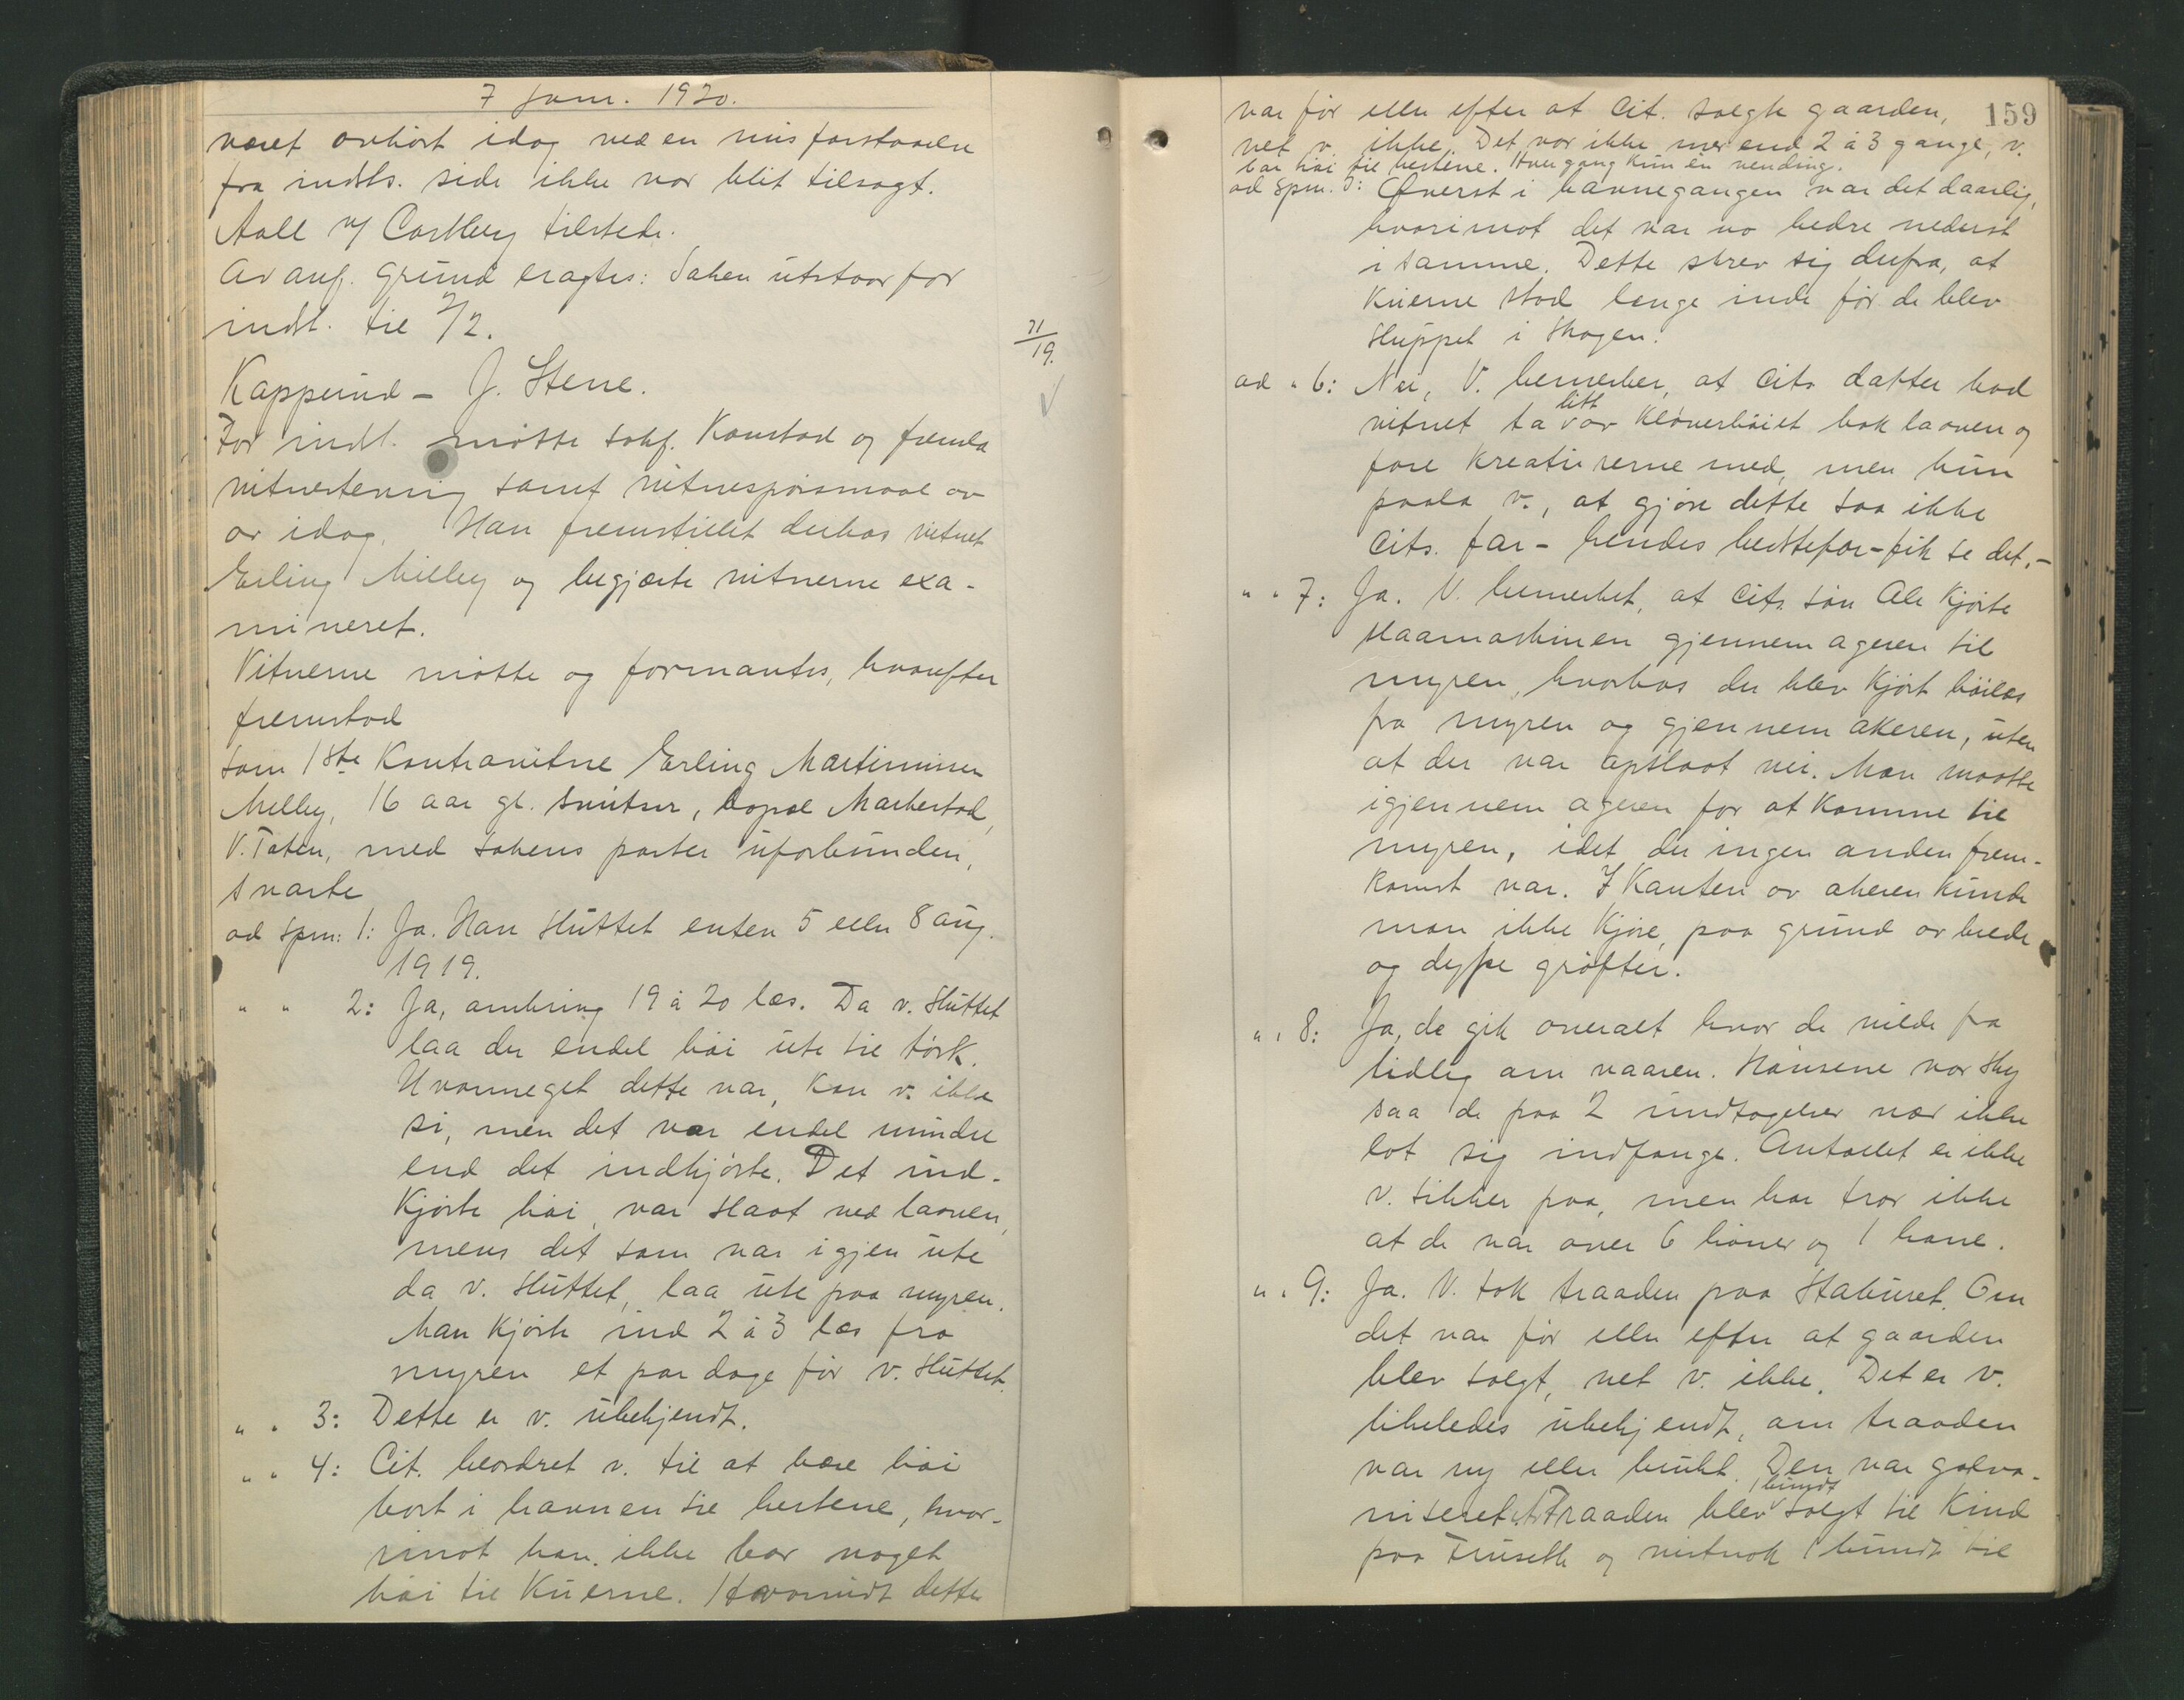 7 Janr. 1920.
været avhört idag ved en misforstaaelse
fra indst. side ikke var blit tilsagt.
Aall v/ Castberg tilstede.
Av anf. grund eragtes: Saken utstaar for
indst. til 2/2.
71/19.
Kapperud – J. Stene.
For indst. mötte sakf. Konstad og fremla
vitnestevning samt vitnespörsmaal av
av idag. Han fremstillet derhos vitnet
Erling Melby og begjærte vitnerne exa-
mineret.
Vitnerne mötte og formantes, hvorefter
fremstod
som 1ste Kontravitne Erling Martiniusen
Melby, 16 aar gl. smitsv, bopæl Markestad,
V. Toten, med sakens parter uforbunden,
svarte
ad spm: 1: Ja. Han sluttet enten 5 eller 8 aug.
1919.
" " 2: Ja, omkring 19 à 20 læs. Da v. sluttet
laa der endel höi ute til törk.
Hvormeget dette var, kan v. ikke
si, men det var endel mindre
end det indkjörte. Det ind-
kjörte höi, var slaat ved laaven,
mens det som var igjen ute
da v. sluttet, laa ute paa myren.
Man kjörte ind 2 à 3 læs fra
myren et par dage för v. sluttet.
" " 3: Dette er v. ubekjendt.
" " 4: Cit. beordret v. til at bære höi
bort i havnen til hestene, hvor-
imot han ikke bar noget
höi til kuerne. Hvorvidt dette
159
var för eller efter at Cit. solgte gaarden,
vet v. ikke. Det var ikke mer end 2 à 3 gange, v.
bar höi til hestene. Hver gang kun en vending.
ad spm. 5: Överst i havnegangen var det daarlig,
hvorimot det var no bedre nederst
i samme. Dette skrev sig derfra, at
kuerne stod lenge inde för de blev
sluppet i skogen.
ad " 6: Nei, V. bemerker, at Cits datter bad
vitnet ta litt av klöverhöiet bak laaven og
fore kreaturerne med, men hun
paala v., at gjöre dette saa ikke
Cits. far – hendes bestefar – fik se det. –
" " 7: Ja. V. bemerket, at Cits sön Ole kjörte
slaamaskinen gjennem ageren til
myren, hvorhos der blev kjört höilæs
fra myren og gjennem akeren, uten
at der var opslaat vei. Man maatte
igjennem ageren for at komme til
myren, idet der ingen anden frem-
komst var. I kanten av akeren kunde
man ikke kjöre, paa grund av brede
og dype gröfter.
" " 8: Ja, de gik overalt hvor de vilde fra
tidlig om vaaren. Hönsene var sky
saa de paa 2 undtagelser nær ikke
lot sig indfange. Antallet er ikke
v. sikker paa, men han tror ikke
at de var over 6 höner og 1 hane.
" " 9: Ja. V. tok traaden paa Staburet. Om
det var för eller efter at gaarden
blev solgt, vet v. ikke. Det er v.
likeledes ubekjendt, om traaden
var ny eller brukt. Den var galva-
niseret. Av traaden blev 1 bundt solgt til Kind
paa Fruseth og vistnok 1 bundt til